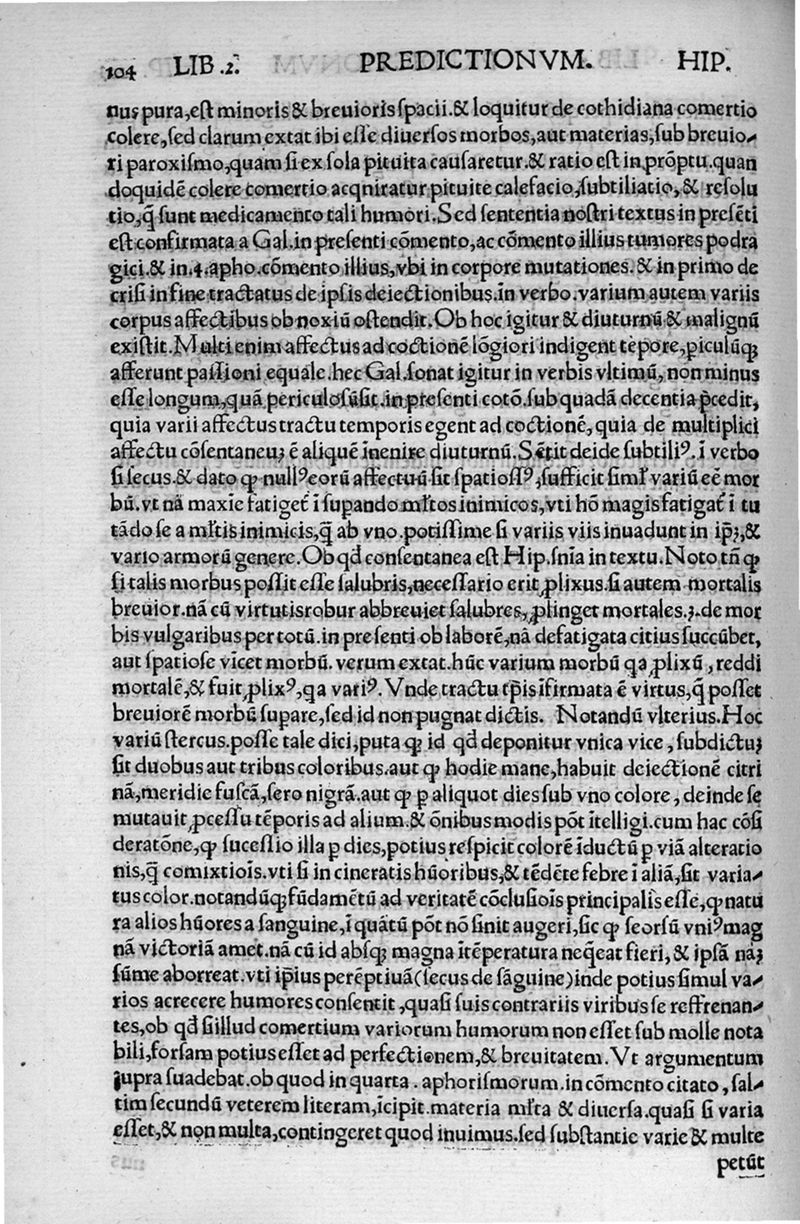 104 LIB .2. PREDICTIONVM. HIP.
nus pura, est minoris & breuioris spacii. & loquitur de cothidiana comertio
colere, sed clarum extat ibi esse diuersos morbos, aut materias, sub breuio-
ri paroxismo, quam si ex sola pituita causaretur. & ratio est in prõptu. quan
doquidẽ colere comertio acqniratur pituite calefacio, subtiliatio, & resolu
tio, q̃ sunt medicamento tali humori. Sed sententia nostri textus in presẽti
est confirmata a Gal. in presenti cõmento, ac cõmento illius tumores podra
gici. & in .4. apho. cõmento illius, vbi in corpore mutationes. & in primo de
crisi in fine tractatus de ipsis deiectionibus. in verbo. varium autem variis
corpus affectibus obnoxiũ ostendit. Ob hoc igitur & diuturnũ & malignũ
existit. Multi enim affectus ad coctionẽ lõgiori indigent tẽpore, ꝑiculũqꝫ
afferunt passioni equale. hec Gal. sonat igitur in verbis vltimũ, non minus
esse longum, quã periculosũ sit. in presenti cotõ. sub quadã decentia p̃cedit,
quia varii affectus tractu temporis egent ad coctionẽ, quia de multiplici
affectu cõsentaneuꝫ ẽ aliquẽ inenire diuturnũ. Sẽtit deide subtiliꝰ. ĩ verbo
si secus. & dato ꝙ nullꝰ eorũ affectuũ sit spatiossꝰ, sufficit simł variũ eẽ mor
bũ. vt nã maxĩe fatiget̃ ĩ supando młtos inimicos, vti hõ magis fatigat̃ ĩ tu
tãdo se a młtis inimicis, q̃ ab vno. potissime si variis viis inuadunt in ip̃ꝫ, &
vario armorũ genere. Ob qđ consentanea est Hip. sñia in textu. Noto tñ ꝙ
si talis morbus possit esse salubris, necessario erit ꝓlixus. si autem mortalis
breuior. nã cũ virtutis robur abbreuiet salubres, ꝓlinget mortales. 3. de mor
bis vulgaribus per totũ. in presenti ob laborẽ, nã defatigata citius succũbet,
aut spatiose vĩcet morbũ. verum extat. hũc varium morbũ qa ꝓlixũ, reddi
mortalẽ, & fuit ꝓlixꝰ, qa variꝰ. Vnde tractu tp̃is ĩfirmata ẽ virtus, q̃ posset
breuiorẽ morbũ supare, sed id non pugnat dictis. Notandũ vlterius. Hoc
variũ stercus. posse tale dici, puta ꝙ id qđ deponitur vnica vice, subdictuꝫ
sit duobus aut tribus coloribus. aut ꝙ hodie mane, habuit deiectionẽ citri
nã, meridie fuscã, sero nigrã. aut ꝙ ꝑ aliquot dies sub vno colore, deinde se
mutauit ꝓcessu tẽporis ad alium. & õnibus modis põt ĩtelligi. cum hac cõsi
deratõne, ꝙ sucessio illa ꝑ dies, potius respicit colorẽ ĩductũ ꝑ viã alteratio
nis, q̃ comixtiõis. vti si in cineratis hũoribus, & tẽdẽte febre ĩ aliã, sit varia-
tus color. notandũqꝫ fũdamẽtũ ad veritatẽ cõclusiõis principalis esse, ꝙ natu
ra alios hũores a sanguine, ĩ quãtũ põt nõ sinit augeri, sic ꝙ seorsũ vniꝰ mag
nã victoriã amet. nã cũ id absqꝫ magna ĩtẽperatura neq̃eat fieri, & ipsã naꝫ
sũme aborreat. vti ip̃ius perẽptiuã (secus de sãguine) inde potius simul va-
rios acrecere humores consentit, quasi suis contrariis viribus se reffrenan-
tes, ob qđ si illud comertium variorum humorum non esset sub molle nota
bili, forsam potius esset ad perfectionem, & breuitatem. Vt argumentum
supra suadebat. ob quod in quarta . aphorismorum. in cõmento citato, sal-
tim secundũ veterem literam, ĩcipit. materia młta & diuersa. quasi si varia
esset, & non multa, contingeret quod inuimus. sed substantie varie & multe
petũt